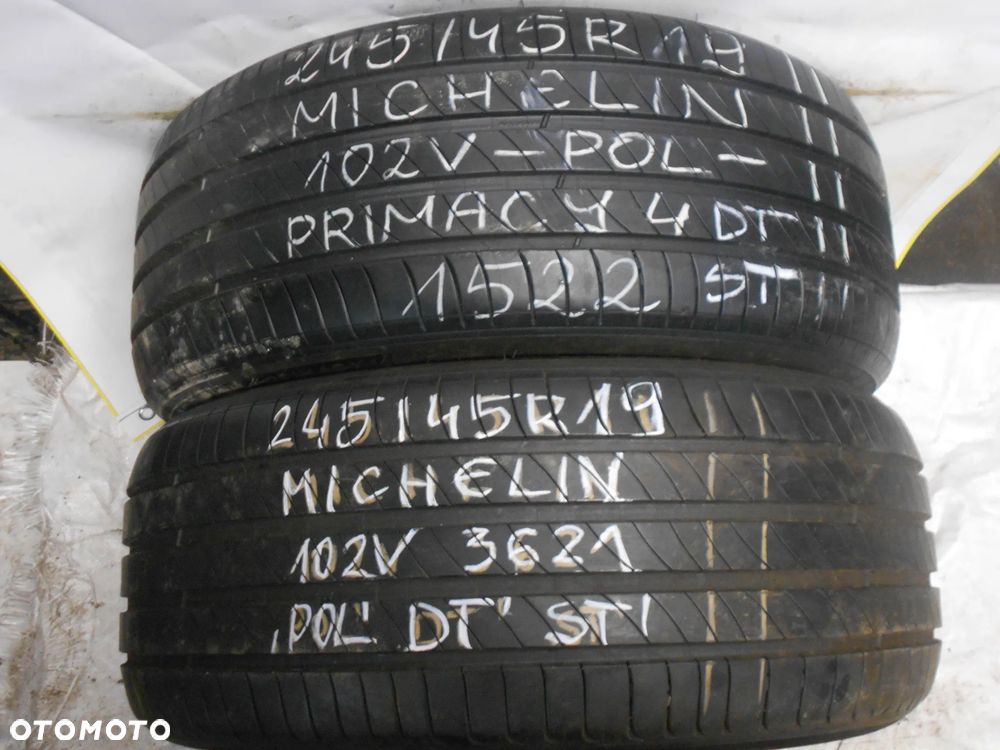 245/45R19
MICHELIN
102V-POL-
PRIMACY 4 DT
1522 ST
245/45R19
MICHELIN
102V 3621
"POL" DT" ST'
OTOMOTO